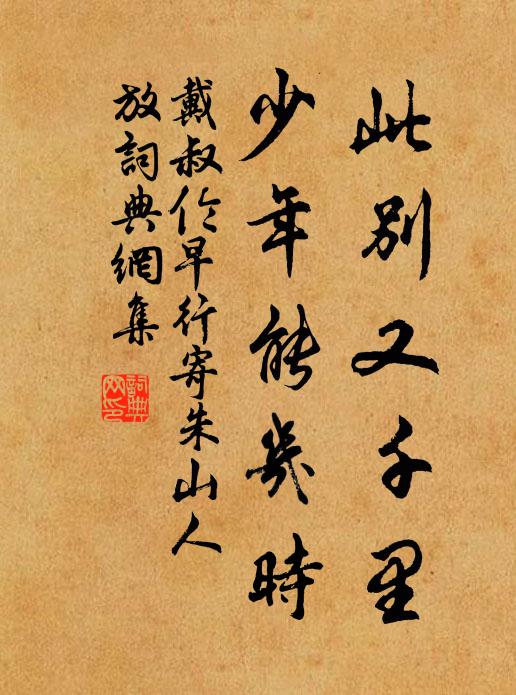 此別又千里
少年能幾時
戴叔倫早行寄朱山人
放詞典網集
詞典
网印